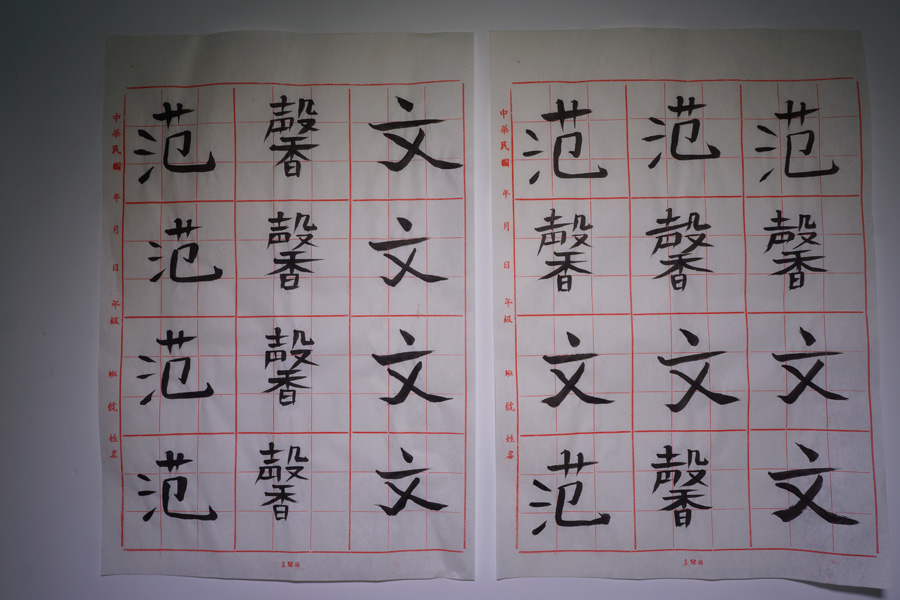 范 馨 文
范 馨 文
范 馨 文
范 馨 文
中華民國 年 月 日 年級 班 號 姓名
范 范 范
馨 馨 馨
文 文 文
范 馨 文
中華民國 年 月 日 年級 班 號 姓名